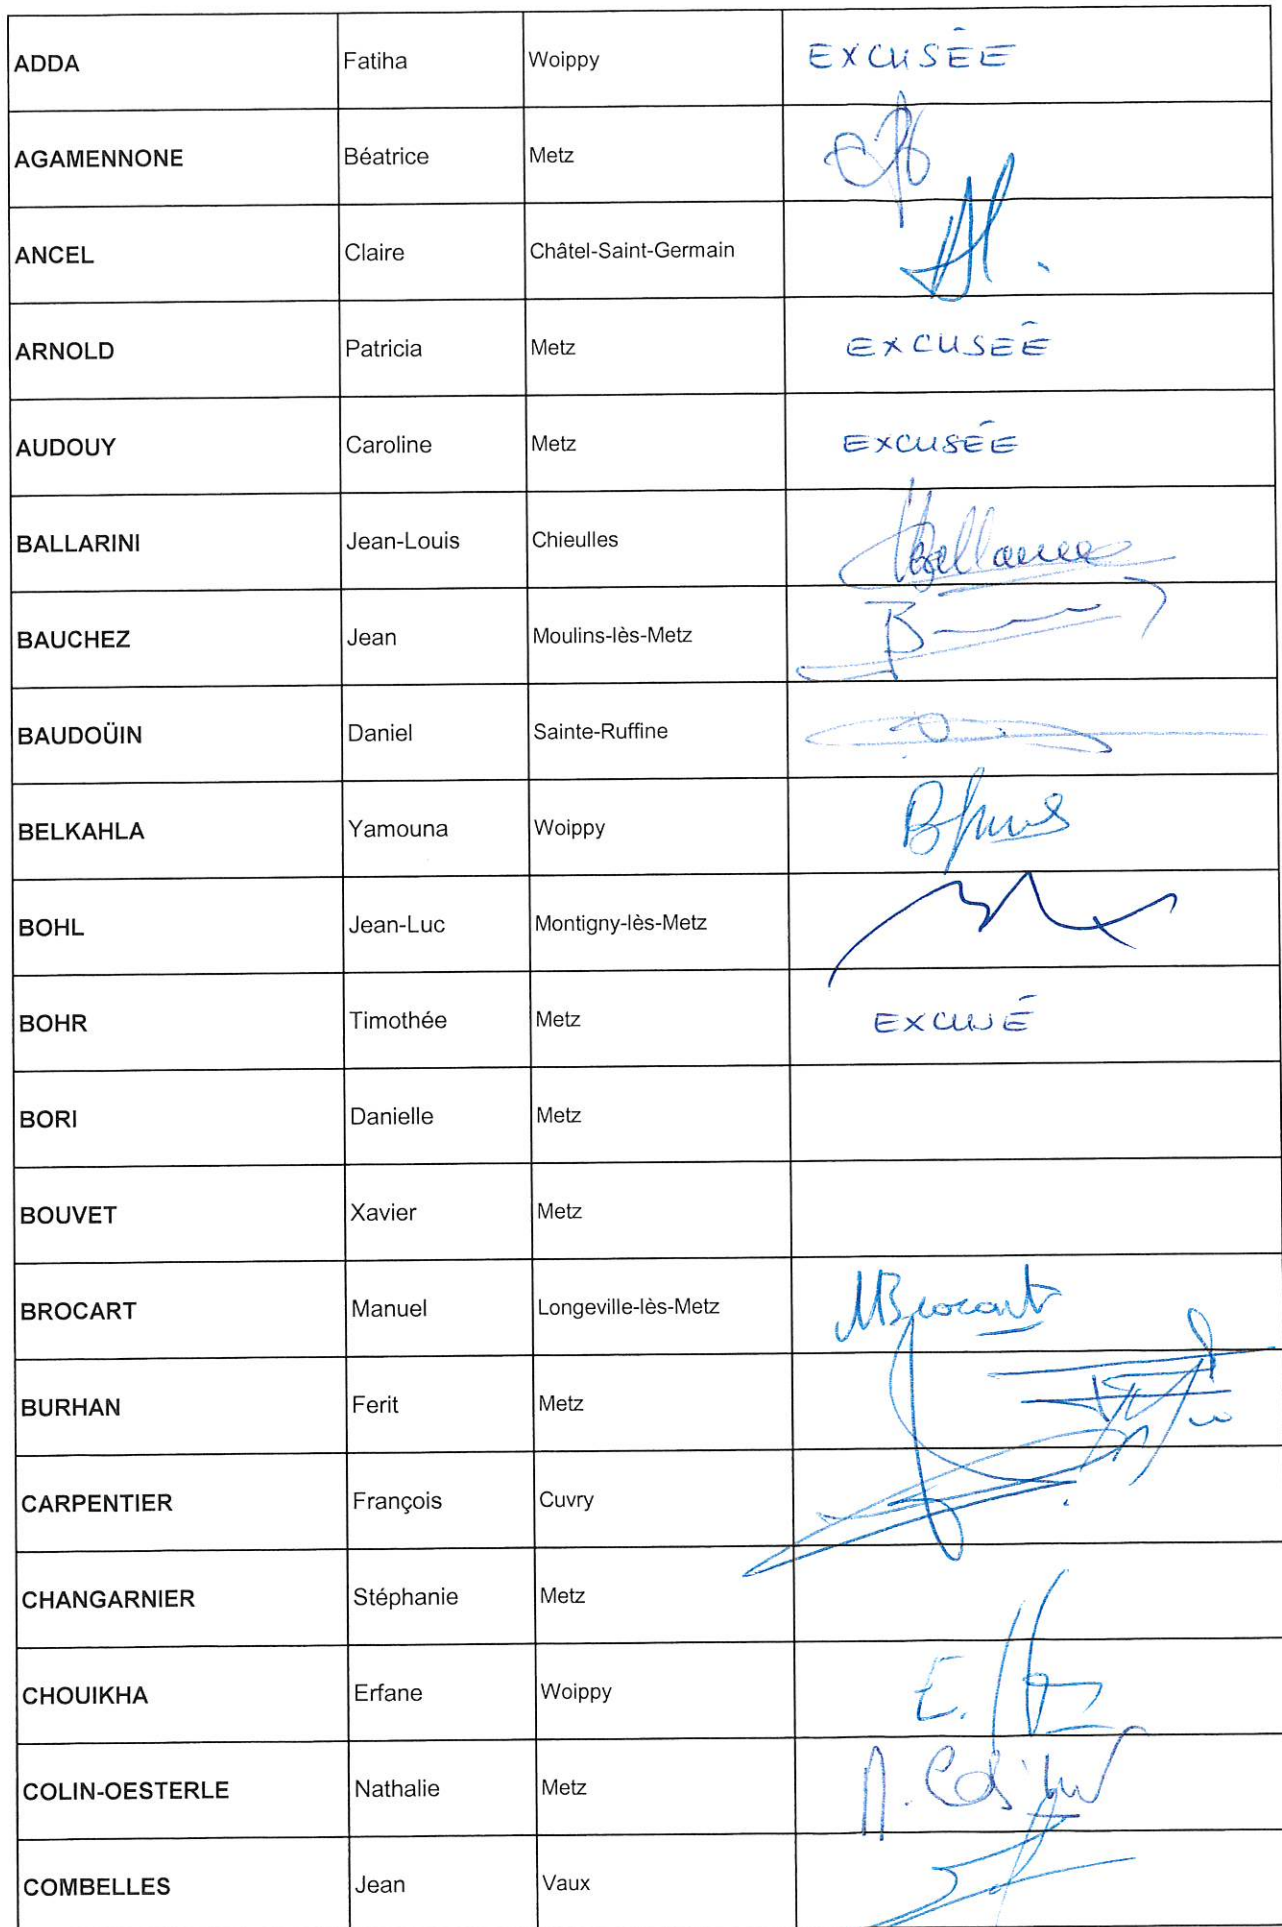 ADDA Fatiha Woippy EXCUSÉE
AGAMENNONE Béatrice Metz
ANCEL Claire Châtel-Saint-Germain
ARNOLD Patricia Metz EXCUSÉE
AUDOUY Caroline Metz EXCUSÉE
BALLARINI Jean-Louis Chieulles
BAUCHEZ Jean Moulins-lès-Metz
BAUDOÜIN Daniel Sainte-Ruffine
BELKAHLA Yamouna Woippy
BOHL Jean-Luc Montigny-lès-Metz
BOHR Timothée Metz EXCUSÉ
BORI Danielle Metz
BOUVET Xavier Metz
BROCART Manuel Longeville-lès-Metz MBrocart
BURHAN Ferit Metz
CARPENTIER François Cuvry
CHANGARNIER Stéphanie Metz
CHOUIKHA Erfane Woippy E.
COLIN-OESTERLE Nathalie Metz
COMBELLES Jean Vaux